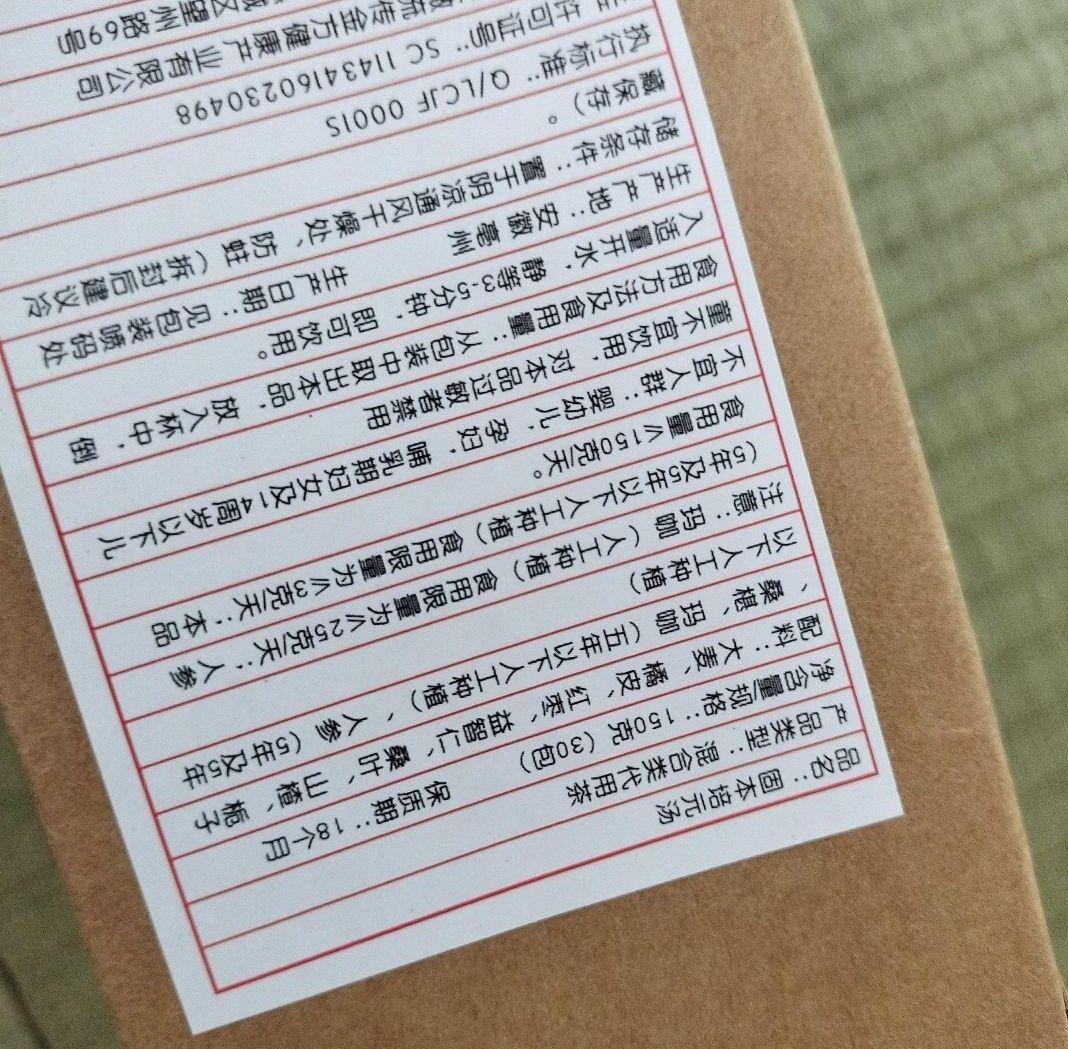 品名：固本培元汤
产品类型：混合类代用茶
净含量/规格：150克（30包） 保质期：18个月
配料：大麦、橘皮、红枣、益智仁、桑叶、山楂、栀子
、桑椹、玛咖（五年以下人工种植）、人参（5年及5年
以下人工种植）
注意：玛咖（人工种植）食用限量为≤25克/天；人参
（5年及5年以下人工种植）食用限量为≤3克/天；本品
食用量≤150克/天。
不宜人群：婴幼儿、孕妇、哺乳期妇女及14周岁以下儿
童不宜饮用，对本品过敏者禁用
食用方法及食用量：从包装中取出本品，放入杯中，倒
入适量开水，静等3-5分钟，即可饮用。
生产产地：安徽亳州 生产日期：见包装喷码处
储存条件：置于阴凉通风干燥处、防蛀（拆封后建议冷
藏保存）。
执行标准：Q/LCJF 0001S
产许可证号：SC 11434160230498
流传金方健康产业有限公司
州路69号